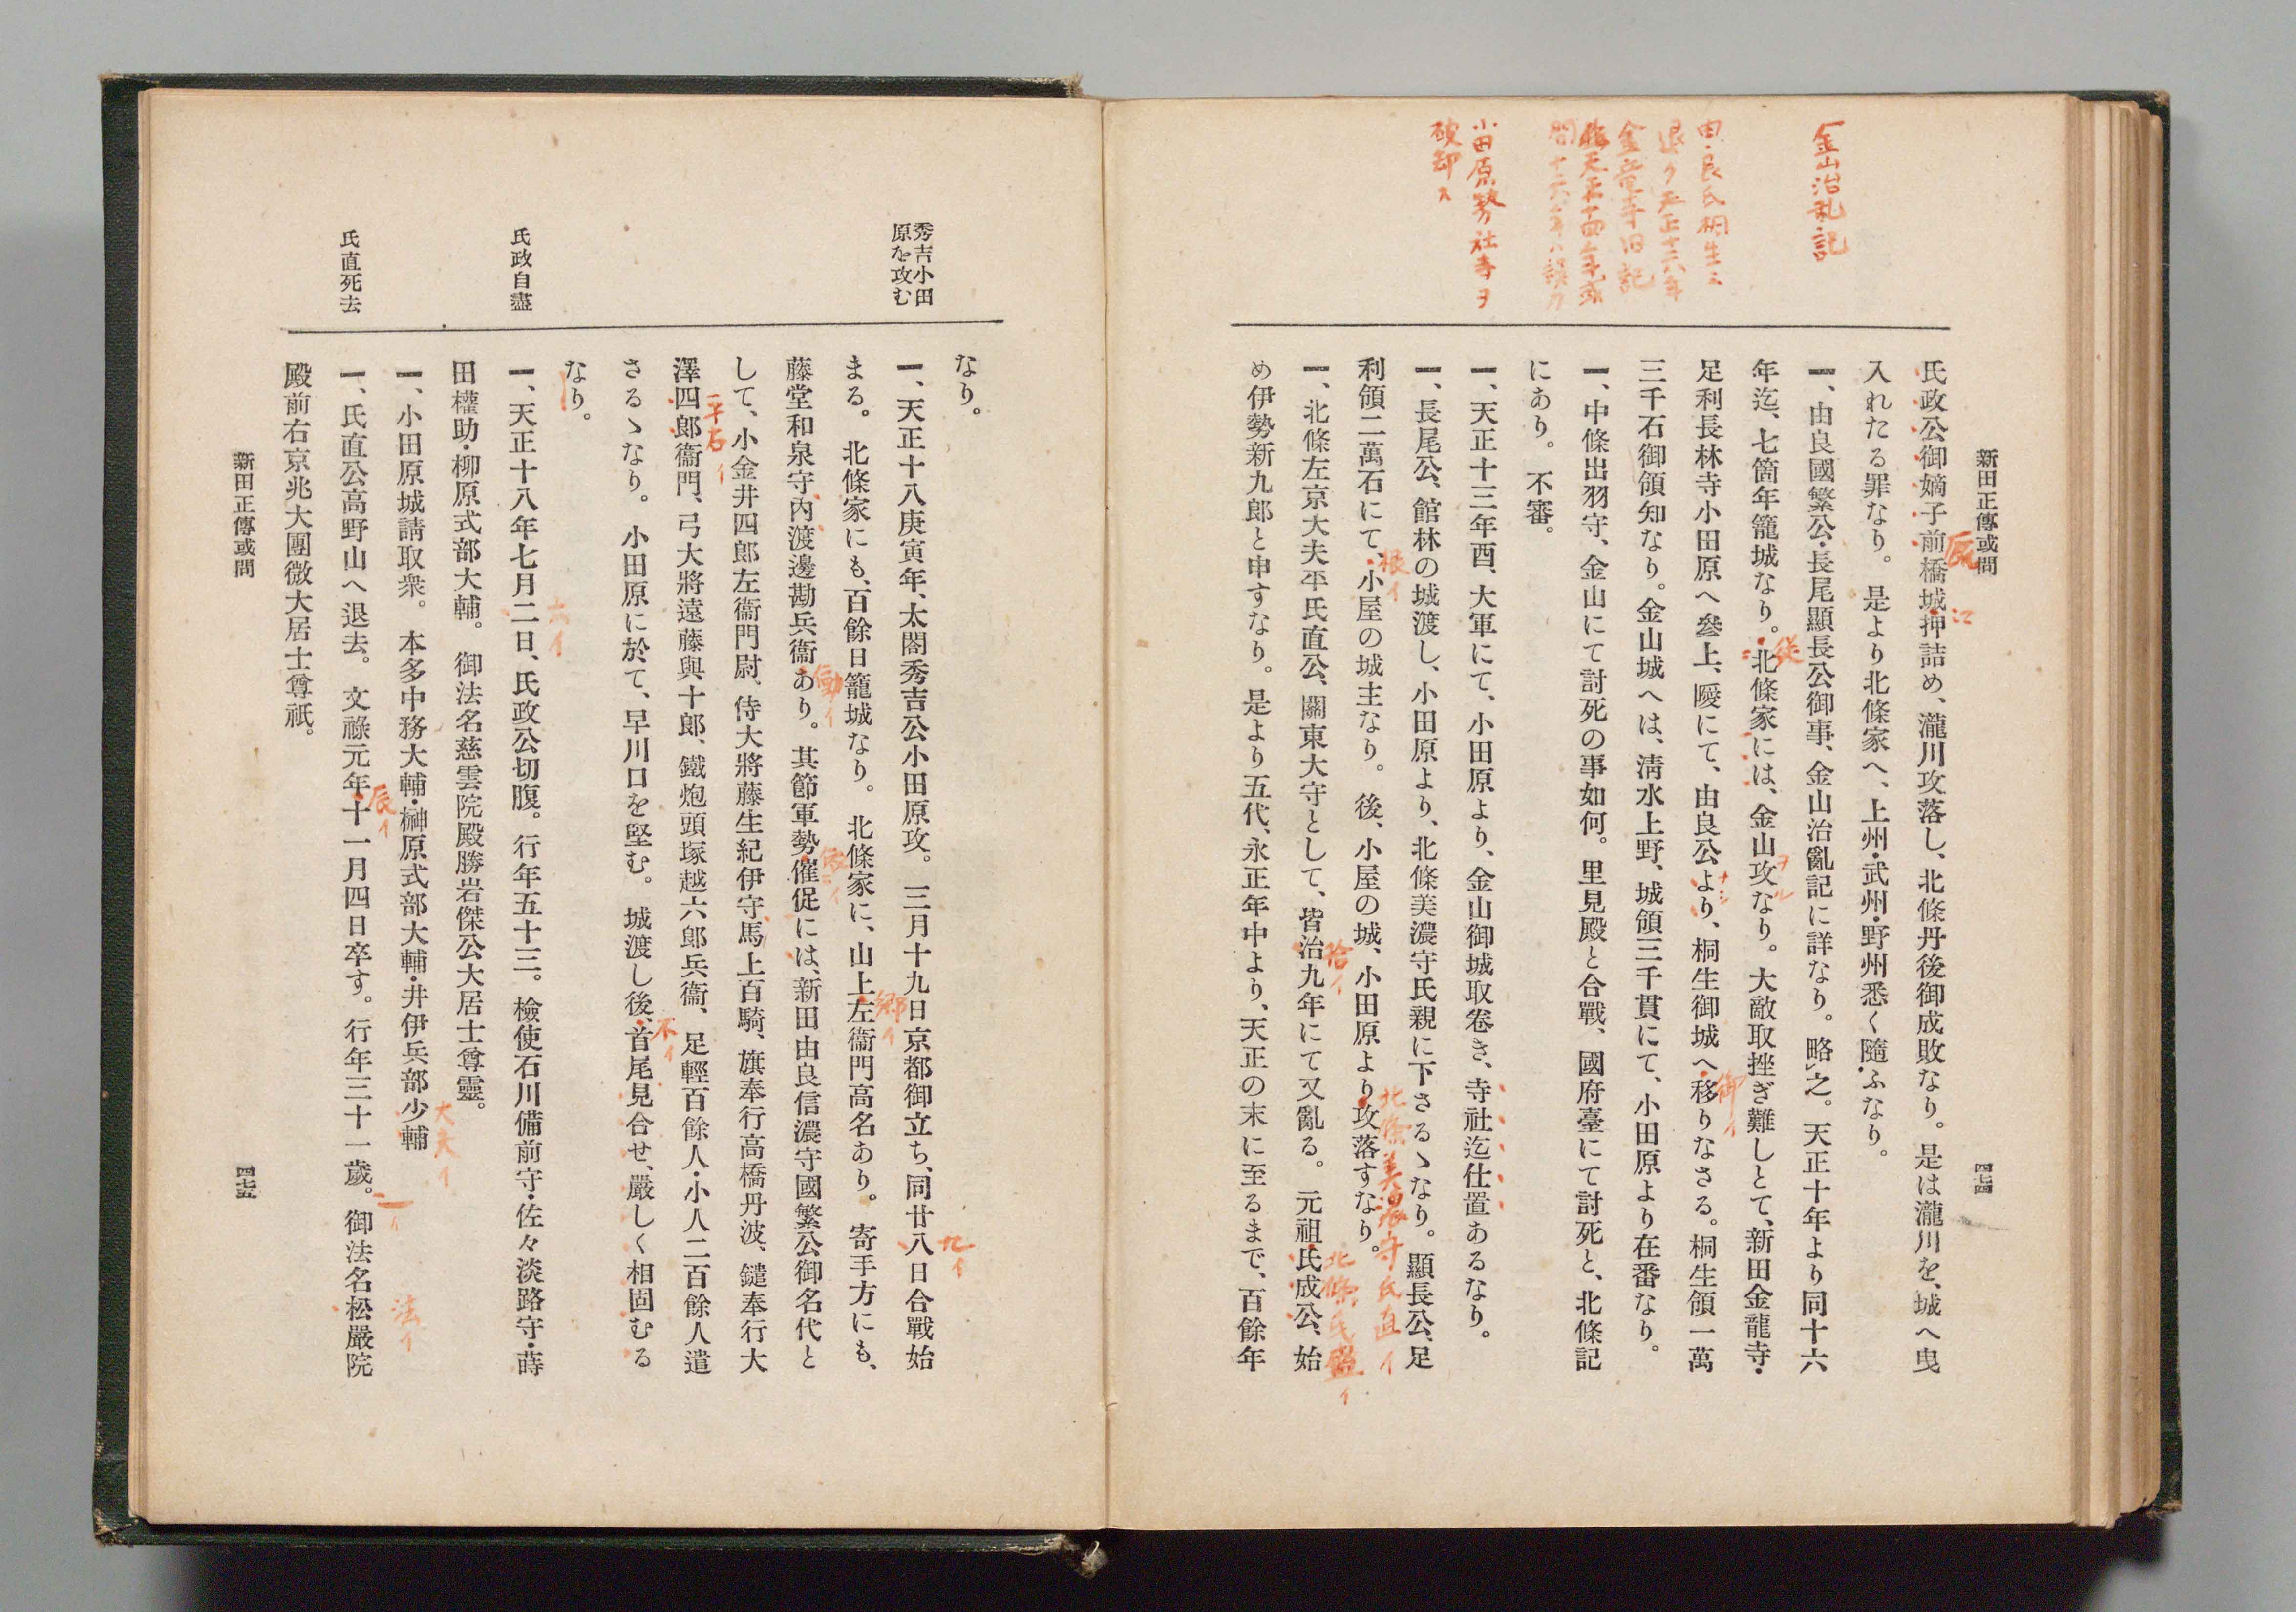 新田正傳或問
四七四
金山治乱記
由良氏桐生ニ
退ク天正十六年
金竜寺旧記
小田原勢社寺ヲ
破却ス
氏政公御嫡子前橋城押詰め、瀧川攻落し、北條丹後御成敗なり。是は瀧川を、城へ曳
入れたる罪なり。是より北條家へ、上州・武州・野州悉く隨ふなり。
一、由良國繁公・長尾顯長公御事、金山治亂記に詳なり。略之。天正十年より同十六
年迄、七箇年籠城なり。北條家には、金山攻なり。大敵取挫ぎ難しとて、新田金龍寺・
足利長林寺小田原へ參上、㕝にて、由良公より、桐生御城へ移りなさる。桐生領一萬
三千石御領知なり。金山城へは、淸水上野、城領三千貫にて、小田原より在番なり。
一、中條出羽守、金山にて討死の事如何。里見殿と合戰、國府臺にて討死と、北條記
にあり。不審。
一、天正十三年酉、大軍にて、小田原より、金山御城取卷き、寺社迄仕置あるなり。
一、長尾公、館林の城渡し、小田原より、北條美濃守氏親に下さるゝなり。顯長公、足
利領二萬石にて、小屋の城主なり。後、小屋の城、小田原より攻落すなり。
一、北條左京大夫平氏直公、關東大守として、皆治九年にて又亂る。元祖氏成公、始
め伊勢新九郎と申すなり。是より五代、永正年中より、天正の末に至るまで、百餘年
辰
江
従
ヲル
ナシ
御イ
根イ
北條美濃守氏直イ
拾イ
北條氏盛イ
秀吉小田
原を攻む
氏政自盡
氏直死去
なり。
一、天正十八庚寅年、太閤秀吉公小田原攻。三月十九日京都御立ち、同廿八日合戰始
まる。北條家にも、百餘日籠城なり。北條家に、山上左衞門高名あり。寄手方にも、
藤堂和泉守內渡邊勘兵衞あり。其節軍勢催促には、新田由良信濃守國繁公御名代と
して、小金井四郎左衞門尉、侍大將藤生紀伊守馬上百騎、旗奉行高橋丹波、鑓奉行大
澤四郎衞門、弓大將遠藤與十郎、鐵炮頭塚越六郎兵衞、足輕百餘人・小人二百餘人遣
さるゝなり。小田原に於て、早川口を堅む。城渡し後、首尾見合せ、嚴しく相固むる
なり。
一、天正十八年七月二日、氏政公切腹。行年五十三。檢使石川備前守・佐々淡路守・蒔
田權助・柳原式部大輔。御法名慈雲院殿勝岩傑公大居士尊靈。
一、小田原城請取衆。本多中務大輔・榊原式部大輔・井伊兵部少輔
一、氏直公高野山へ退去。文祿元年十一月四日卒す。行年三十一歲。御法名松嚴院
殿前右京兆大團微大居士尊祇。
九イ
郷イ
働イ
平右イ
不イ
六イ
大夫イ
辰イ
一イ
法イ
新田正傳或問
四七五